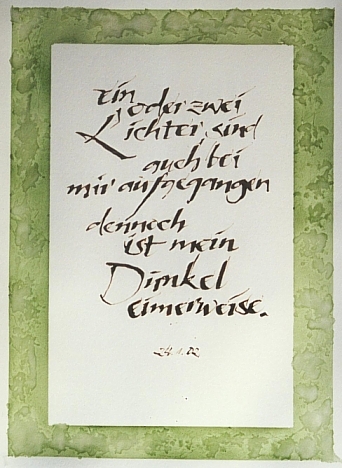 ein
oder zwei
Lichter sind
auch bei
mir aufgegangen
dennoch
ist mein
Dunkel
eimerweise.